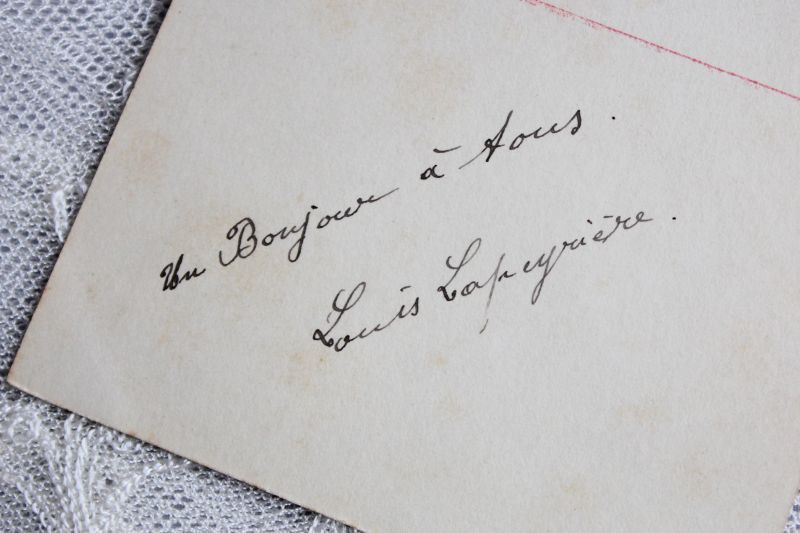 Un Bonjour à tous.
Louis Lapeyrière.